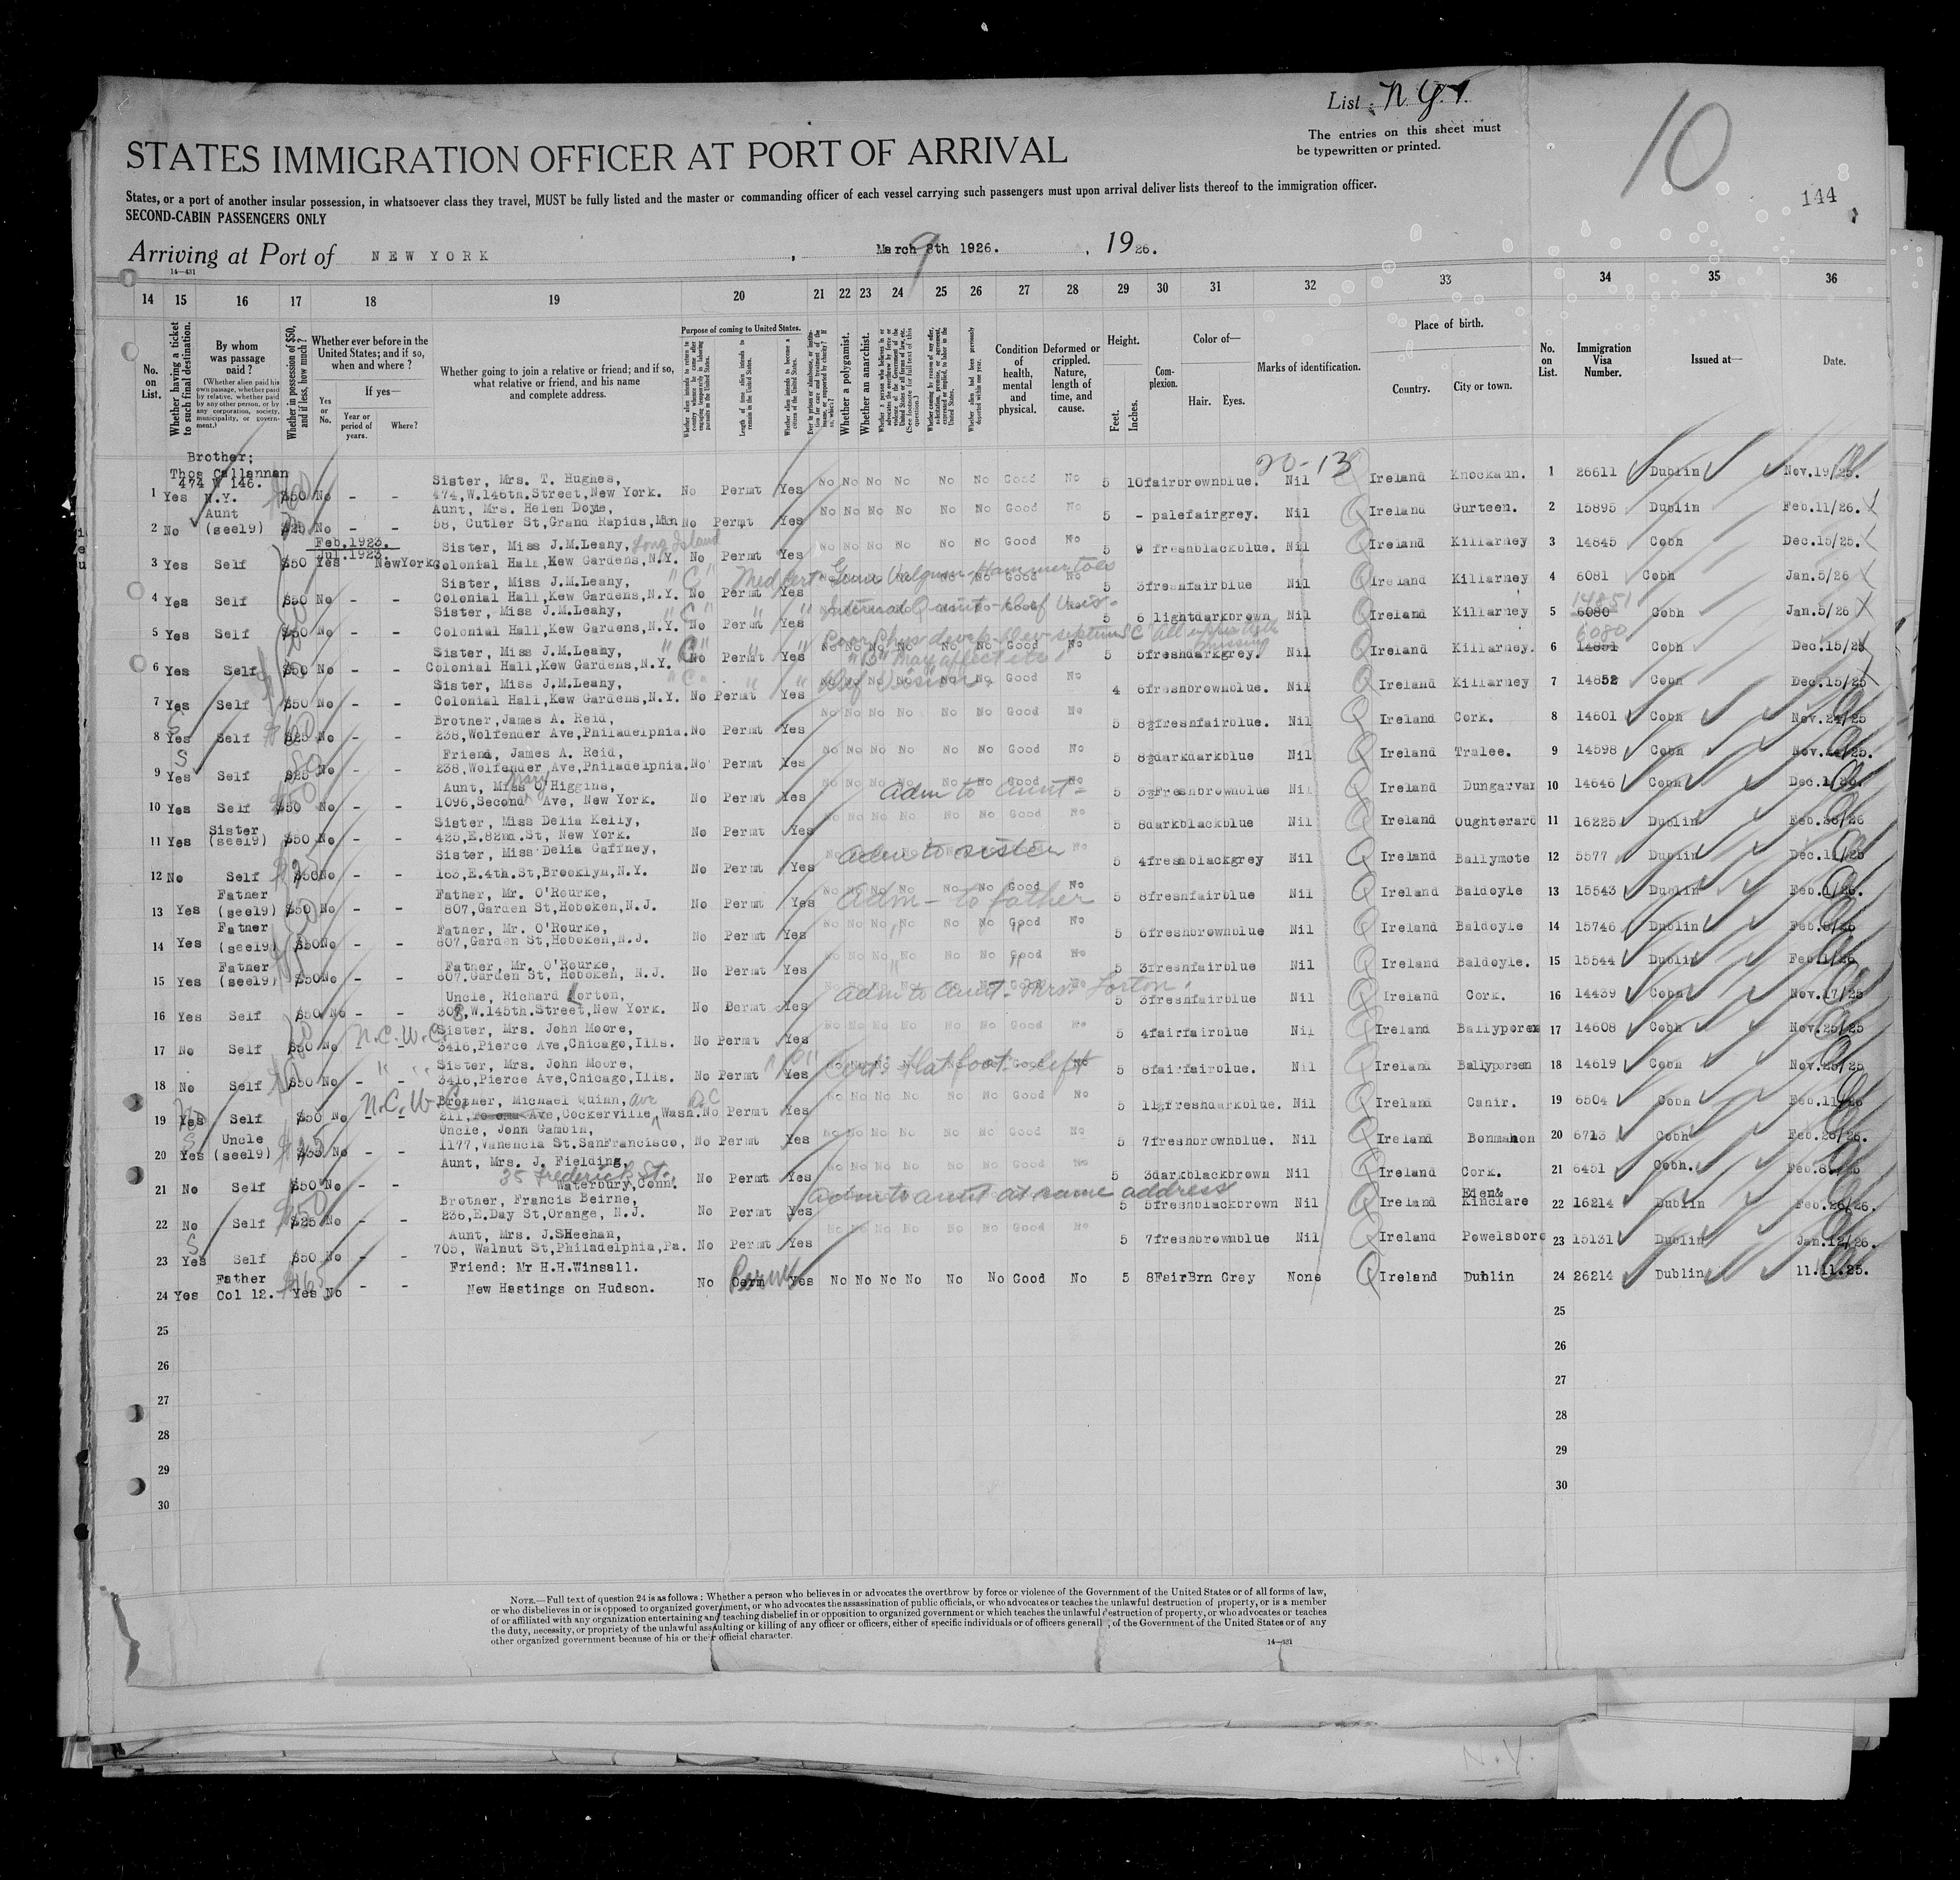 List N.Y.1.
The entries on this sheet must
be typewritten or printed.
10
144
STATES IMMIGRATION OFFICER AT PORT OF ARRIVAL
States, or a port of another insular possession, in whatsoever class they travel, MUST be fully listed and the master or commanding officer of each vessel carrying such passengers must upon arrival deliver lists thereof to the immigration officer.
SECOND-CABIN PASSENGERS ONLY
Arriving at Port of NEW YORK , March 8th 1926. 9 , 1926.
14—431
14 15 16 17 18 19 20 21 22 23 24 25 26 27 28 29 30 31 32 33 34 35 36
No. on List.
Whether having a ticket to such final destination.
By whom was passage paid?
(Whether alien paid his own passage, whether paid by relative, whether paid by any other person, or by any corporation, society, municipality, or government.)
Whether in possession of $50, and if less, how much?
Whether ever before in the United States; and if so, when and where?
If yes—
Yes or No.
Year or period of years.
Where?
Whether going to join a relative or friend; and if so, what relative or friend, and his name and complete address.
Purpose of coming to United States.
Length of time alien intends to remain in the United States.
Whether alien intends to become a citizen of the United States.
Whether a polygamist.
Whether an anarchist.
Condition of health, mental and physical.
Deformed or crippled. Nature, length of time, and cause.
Height.
Feet. Inches.
Complexion.
Color of—
Hair. Eyes.
Marks of identification.
Place of birth.
Country. City or town.
No. on List.
Immigration Visa Number.
Issued at—
Date.
20-13
Brother;
Thos Callannan
474 W 146.
N.Y.
1 Yes $50 No - - Sister, Mrs. T. Hughes,
474,W.146th.Street,New York. No Permt Yes No No No No No No Good No 5 10 fair brown blue. Nil Ireland Knockaun. 1 26611 Dublin Nov.19/25.
Aunt
2 No (see19) $25 No - - Aunt, Mrs. Helen Doyle,
58, Cutler St,Grand Rapids, No Permt Yes No No No No No No Good No 5 - pale fair grey. Nil Ireland Gurteen. 2 15895 Dublin Feb.11/26.
Feb.1923.
Jul.1923.
3 Yes Self $50 Yes New York Sister, Miss J.M.Leahy, Long Island
Colonial Hall,Kew Gardens,N.Y. No Permt Yes No No No No No No Good No 5 9 fresh black blue. Nil Ireland Killarney 3 14845 Cobh Dec.15/25.
4 Yes Self $50 No - - Sister, Miss J.M.Leahy, "C" Med Cert Genu Valgum - Hammertoes
Colonial Hall,Kew Gardens,N.Y. No Permt Yes Good No 5 3 fresh fair blue Nil Ireland Killarney 4 6081 Cobh Jan.5/26
5 Yes Self $50 No - - Sister, Miss J.M.Leahy, "C" " "
Colonial Hall,Kew Gardens,N.Y. No Permt Yes 5 6 light dark brown Nil Ireland Killarney 5 6080 14851 Cobh Jan.5/26
6 Yes Self $50 No - - Sister, Miss J.M.Leahy, "C" " " Poor Phys devel- Dev septum "C" All upper teeth missing
Colonial Hall,Kew Gardens,N.Y. No Permt Yes No No No No No No Good No "B" May affect etc 5 5 fresh dark grey. Nil Ireland Killarney. 6 14851 6080 Cobh Dec.15/25
7 Yes Self $50 No - - Sister, Miss J.M.Leahy, "C" " " Def Vision.
Colonial Hall,Kew Gardens,N.Y. No Permt Yes No No Good No 4 6 fresh brown blue. Nil Ireland Killarney 7 14852 Cobh Dec.15/25
8 Yes Self $25 No - - Brother,James A. Reid,
238,Wolfender Ave,Philadelphia. No Permt Yes No No No No No No Good No 5 8½ fresh fair blue. Nil Ireland Cork. 8 14601 Cobh Nov.24/25
S
9 Yes Self $25 No - - Friend, James A. Reid,
238,Wolfender Ave,Philadelphia. No Permt Yes No No No No No No Good No 5 8½ dark dark blue Nil Ireland Tralee. 9 14598 Cobh Nov.24/25.
10 Yes Self $50 No - - Aunt, Miss Mary O'Higgins,
1096,Second Ave, New York. No Permt Yes No No No No No No Good No Adm to Aunt- 5 Fresh brown blue Nil Ireland Dungarvan 10 14646 Cobh Dec.
11 Yes Sister (see19) $50 No - - Sister, Miss Delia Kelly,
425,E.82nd.St, New York. No Permt Yes No No No No No No Good No 5 8 dark black blue Nil Ireland Oughterard 11 16225 Dublin Feb.26/26
12 No Self $50 No - - Sister, Miss Delia Gaffney,
163,E.4th.St,Brooklyn,N.Y. No Permt Yes Adm to sister 5 4 fresh black grey Nil Ireland Ballymote 12 5577 Dublin Dec.11/25
13 Yes Father (see19) $50 No - - Father, Mr. O'Rourke,
807,Garden St,Hoboken,N.J. No Permt Yes No No No No No No Good No Adm - to father 5 8 fresh fair blue Nil Ireland Baldoyle 13 15543 Dublin Feb.1/26.
14 Yes Father (see19) $50 No - - Father, Mr. O'Rourke,
807,Garden St,Hoboken,N.J. No Permt Yes No No No No No No Good No " " 5 6 fresh brown blue Nil Ireland Baldoyle 14 15746 Dublin Feb.8/26
15 Yes Father (see19) $50 No - - Father, Mr. O'Rourke,
807,Garden St, Hoboken, N.J. No Permt Yes No No No No No No Good No " " 5 3 fresh fair blue Nil Ireland Baldoyle. 15 15544 Dublin Feb.1/26.
16 Yes Self $50 No - - Uncle, Richard Lorton,
308,W.145th.Street,New York. No Permt Yes Adm to Aunt- Mrs. Lorton. 5 3 fresh fair blue Nil Ireland Cork. 16 14439 Cobh Nov.17/25
17 No Self $50 No - - N.C.W.C. Sister, Mrs. John Moore,
3416,Pierce Ave,Chicago,Ills. No Permt Yes No No No No No No Good No 5 4 fair fair blue Nil Ireland Ballyporeen 17 14608 Cobh Nov.25/25
18 No Self $50 No - - " " Sister, Mrs. John Moore,
3416,Pierce Ave,Chicago,Ills. No Permt Yes "C" Cert: flat foot left 5 8 fair fair blue. Nil Ireland Ballyporeen 18 14619 Cobh Nov.25/25
19 Yes Self $50 No - - N.C.W.C. Brother, Michael Quinn, Ave
211, Ave,Cockerville,Wash. No Permt Yes No No No No No No Good No 5 11½ fresh dark blue. Nil Ireland Cahir. 19 6504 Cobh Feb.11/26
S
20 Yes Uncle (see19) No - - Uncle, John Gambin,
1177,Vanencia St.SanFrancisco, No Permt Yes No No No No No No Good No 5 7 fresh brown blue. Nil Ireland Bonmahon 20 6713 Cobh Feb.26/26.
21 No Self $50 No - - Aunt, Mrs. J. Fielding,
35 Frederick St.,
Waterbury,Conn. No Permt Yes No No No No No No Good No 5 3 dark black brown Nil Ireland Cork. 21 6451 Cobh. Feb.8/26
22 No Self $25 No - - Brother, Francis Beirne,
236,E.Day St,Orange, N.J. No Permt Yes Adm to aunt at same address 5 5 fresh black brown Nil Ireland Kinclare 22 16214 Dublin Feb.26/26.
S
23 Yes Self $50 No - - Aunt, Mrs. J.SHeehan,
705, Walnut St,Philadelphia,Pa. No Permt Yes No No No No No No Good No 5 7 fresh brown blue Nil Ireland Powelsboro 23 15131 Dublin Jan.12/26.
24 Yes Father Col 12. Yes No - - Friend: Mr H.H.Winsall.
New Hastings on Hudson. No Perm Yes No No No No No No Good No 5 8 Fair Brn Grey None Ireland Dublin 24 26214 Dublin 11.11.25.
25 25
26 26
27 27
28 28
29 29
30 30
NOTE.—Full text of question 24 is as follows: Whether a person who believes in or advocates the overthrow by force or violence of the Government of the United States or of all forms of law,
or who disbelieves in or is opposed to organized government, or who advocates the assassination of public officials, or who advocates or teaches the unlawful destruction of property, or is a member
of or affiliated with any organization entertaining and teaching disbelief in or opposition to organized government or which teaches the unlawful destruction of property, or who advocates or teaches
the duty, necessity, or propriety of the unlawful assaulting or killing of any officer or officers, either of specific individuals or of officers generally, of the Government of the United States or of any
other organized government because of his or their official character.
14—431
N.Y.